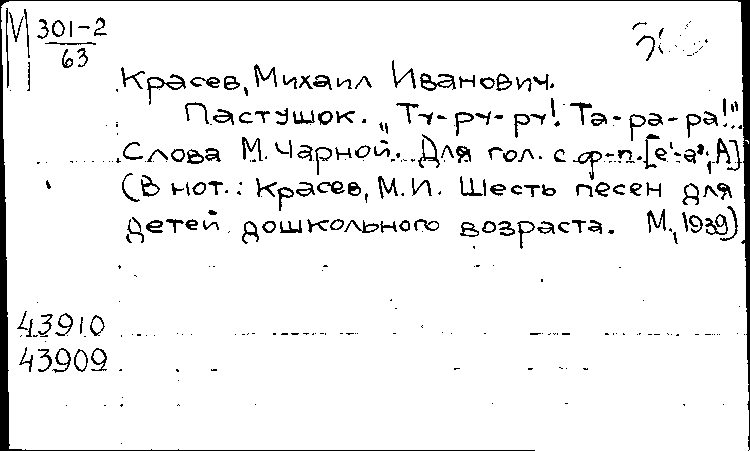 М 301-2
63
Красев, Михаил Иванович.
Пастушок. „Ту-ру-ру! Та-ра-ра!".
Слова М. Чарной. Для гол. с ф-п. [e¹-a²; A]
(В нот.: Красев, М.И. Шесть песен для
детей дошкольного возраста. М., 1939)
43910
43909